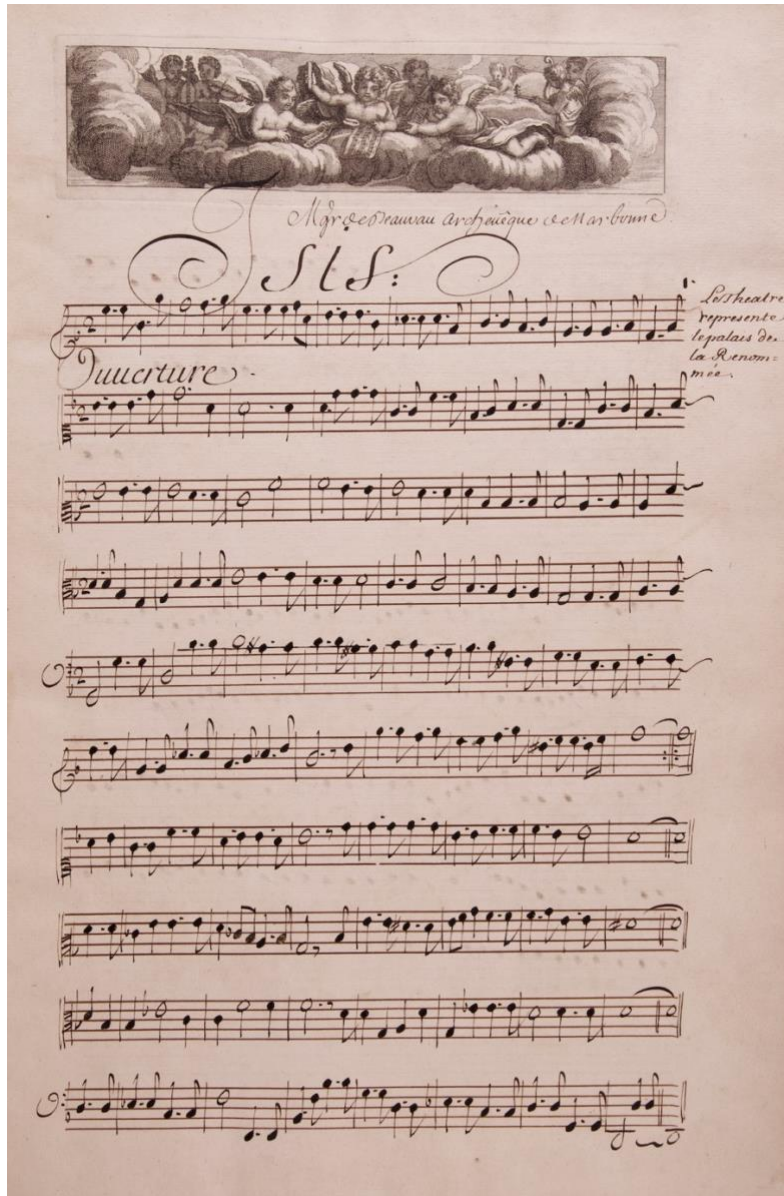 Mgr de Beauvau archeuêque de Narbonne
ISIS:
1.
Le Theatre
represente
le palais de
la Renom=
mée.
Ouuerture
2
2
2
2
2